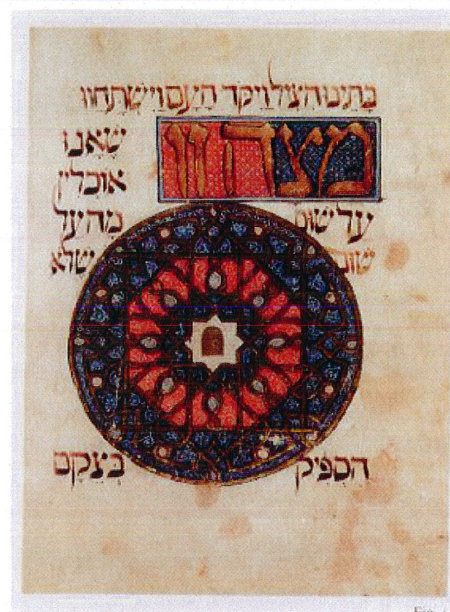 בתינו הציל ויקד העם וישתחוו
מצה זו
שאנו
אוכלין
על שום מה על
שום שלא
הספיק בצקם